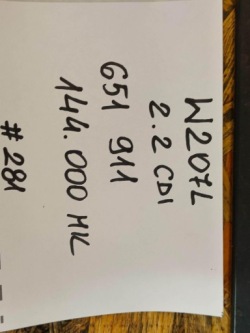 W207L
2.2 CDI
651 911
144.000 MK
#281